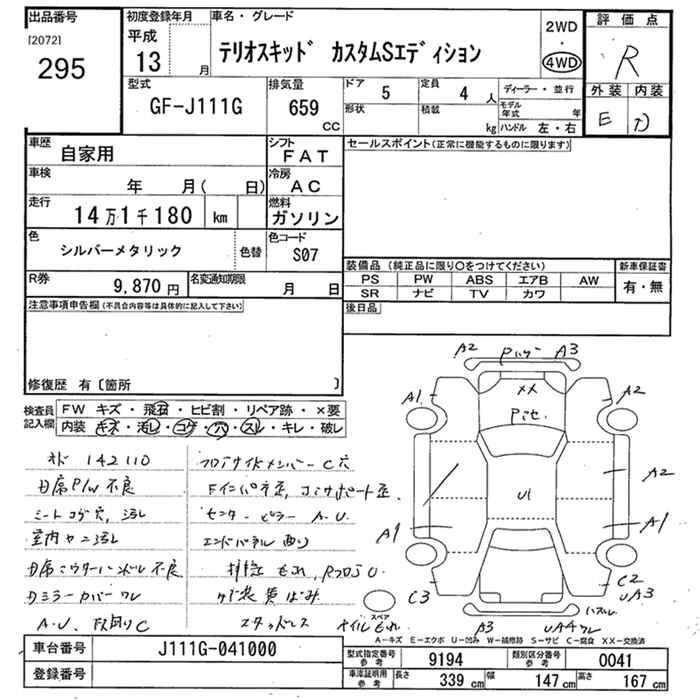 出品番号
[2072]
295
初度登録年月
平成
13 月
車名・グレード
テリオスキッド カスタムSエディション
2WD
・
4WD
評価点
R
外装 内装
E D
型式
GF-J111G
排気量
659
CC
ドア
5
定員
4 人
形状
積載
kg
ディーラー・並行
モデル年式 年
ハンドル 左・右
車歴
自家用
シフト
FAT
車検
年 月( 日)
冷房
AC
走行
14万1千180 km
燃料
ガソリン
色
シルバーメタリック
色替
色コード
S07
R券
9,870 円
名変通知期限
月 日
セールスポイント(正常に機能するものに限ります)
装備品 (純正品に限り○をつけてください)
PS PW ABS エアB AW
SR ナビ TV カワ
新車保証書
有・無
後日品
注意事項申告欄(不具合内容等は具体的に記入して下さい)
修復歴 有〔箇所 〕
検査員記入欄
FW キズ・飛石・ヒビ割・リペア跡・×要
内装 キズ・汚レ・コゲ・穴・スレ・キレ・破レ
142110
P/W不良
シートコゲ穴,汚レ
室内ヤニ汚レ
不良
ミラーカバーワレ
A-U,
C穴
センターピラー A-U
エンドパネル曲り
スタッドレス
オイルもれ
A2 A3
A1 XX A2
A2
U1
A1 A1
C3 C2
UA3
A3 UA4ワレ
スペア
A-キズ E-エクボ U-凹み W-補修跡 S-サビ C-腐食 XX-交換済
車台番号
J111G-041000
登録番号
型式指定番号 参考
9194
類別区分番号 参考
0041
車庫証明用 参考
長さ 339 cm
幅 147 cm
高さ 167 cm